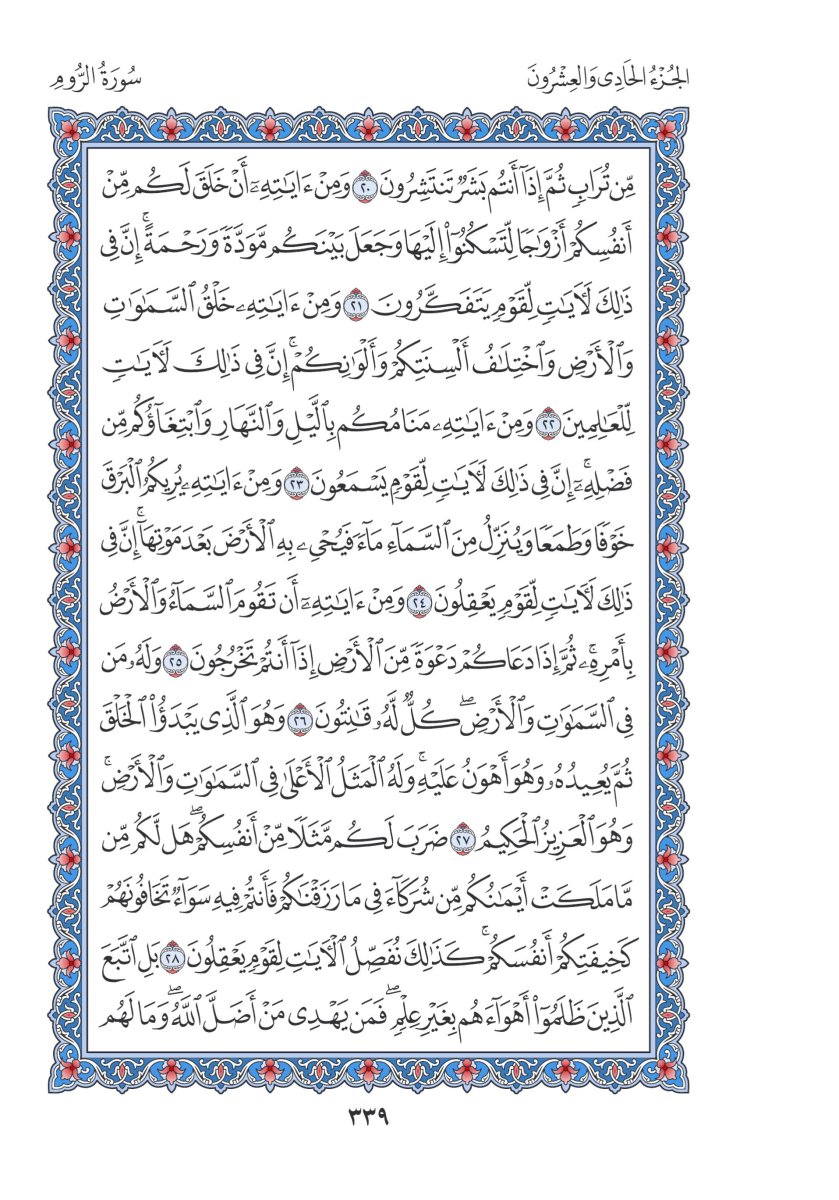 الجُزْءُ الحَادِى وَالعِشْرُونَ
سُورَةُ الرُّومِ
مِّن تُرَابٍ ثُمَّ إِذَآ أَنتُم بَشَرٌ تَنتَشِرُونَ ٢٠ وَمِنْ ءَايَٰتِهِۦٓ أَنْ خَلَقَ لَكُم مِّنْ
أَنفُسِكُمْ أَزْوَٰجًا لِّتَسْكُنُوٓا۟ إِلَيْهَا وَجَعَلَ بَيْنَكُم مَّوَدَّةً وَرَحْمَةً ۚ إِنَّ فِى
ذَٰلِكَ لَءَايَٰتٍ لِّقَوْمٍ يَتَفَكَّرُونَ ٢١ وَمِنْ ءَايَٰتِهِۦ خَلْقُ ٱلسَّمَٰوَٰتِ
وَٱلْأَرْضِ وَٱخْتِلَٰفُ أَلْسِنَتِكُمْ وَأَلْوَٰنِكُمْ ۚ إِنَّ فِى ذَٰلِكَ لَءَايَٰتٍ
لِّلْعَٰلِمِينَ ٢٢ وَمِنْ ءَايَٰتِهِۦ مَنَامُكُم بِٱلَّيْلِ وَٱلنَّهَارِ وَٱبْتِغَآؤُكُم مِّن
فَضْلِهِۦٓ ۚ إِنَّ فِى ذَٰلِكَ لَءَايَٰتٍ لِّقَوْمٍ يَسْمَعُونَ ٢٣ وَمِنْ ءَايَٰتِهِۦ يُرِيكُمُ ٱلْبَرْقَ
خَوْفًا وَطَمَعًا وَيُنَزِّلُ مِنَ ٱلسَّمَآءِ مَآءً فَيُحْىِۦ بِهِ ٱلْأَرْضَ بَعْدَ مَوْتِهَآ ۚ إِنَّ فِى
ذَٰلِكَ لَءَايَٰتٍ لِّقَوْمٍ يَعْقِلُونَ ٢٤ وَمِنْ ءَايَٰتِهِۦٓ أَن تَقُومَ ٱلسَّمَآءُ وَٱلْأَرْضُ
بِأَمْرِهِۦ ۚ ثُمَّ إِذَا دَعَاكُمْ دَعْوَةً مِّنَ ٱلْأَرْضِ إِذَآ أَنتُمْ تَخْرُجُونَ ٢٥ وَلَهُۥ مَن
فِى ٱلسَّمَٰوَٰتِ وَٱلْأَرْضِ ۖ كُلٌّ لَّهُۥ قَٰنِتُونَ ٢٦ وَهُوَ ٱلَّذِى يَبْدَؤُا۟ ٱلْخَلْقَ
ثُمَّ يُعِيدُهُۥ وَهُوَ أَهْوَنُ عَلَيْهِ ۚ وَلَهُ ٱلْمَثَلُ ٱلْأَعْلَىٰ فِى ٱلسَّمَٰوَٰتِ وَٱلْأَرْضِ ۚ
وَهُوَ ٱلْعَزِيزُ ٱلْحَكِيمُ ٢٧ ضَرَبَ لَكُم مَّثَلًا مِّنْ أَنفُسِكُمْ ۖ هَل لَّكُم مِّن
مَّا مَلَكَتْ أَيْمَٰنُكُم مِّن شُرَكَآءَ فِى مَا رَزَقْنَٰكُمْ فَأَنتُمْ فِيهِ سَوَآءٌ تَخَافُونَهُمْ
كَخِيفَتِكُمْ أَنفُسَكُمْ ۚ كَذَٰلِكَ نُفَصِّلُ ٱلْءَايَٰتِ لِقَوْمٍ يَعْقِلُونَ ٢٨ بَلِ ٱتَّبَعَ
ٱلَّذِينَ ظَلَمُوٓا۟ أَهْوَآءَهُم بِغَيْرِ عِلْمٍ ۖ فَمَن يَهْدِى مَنْ أَضَلَّ ٱللَّهُ ۖ وَمَا لَهُم
٣٣٩